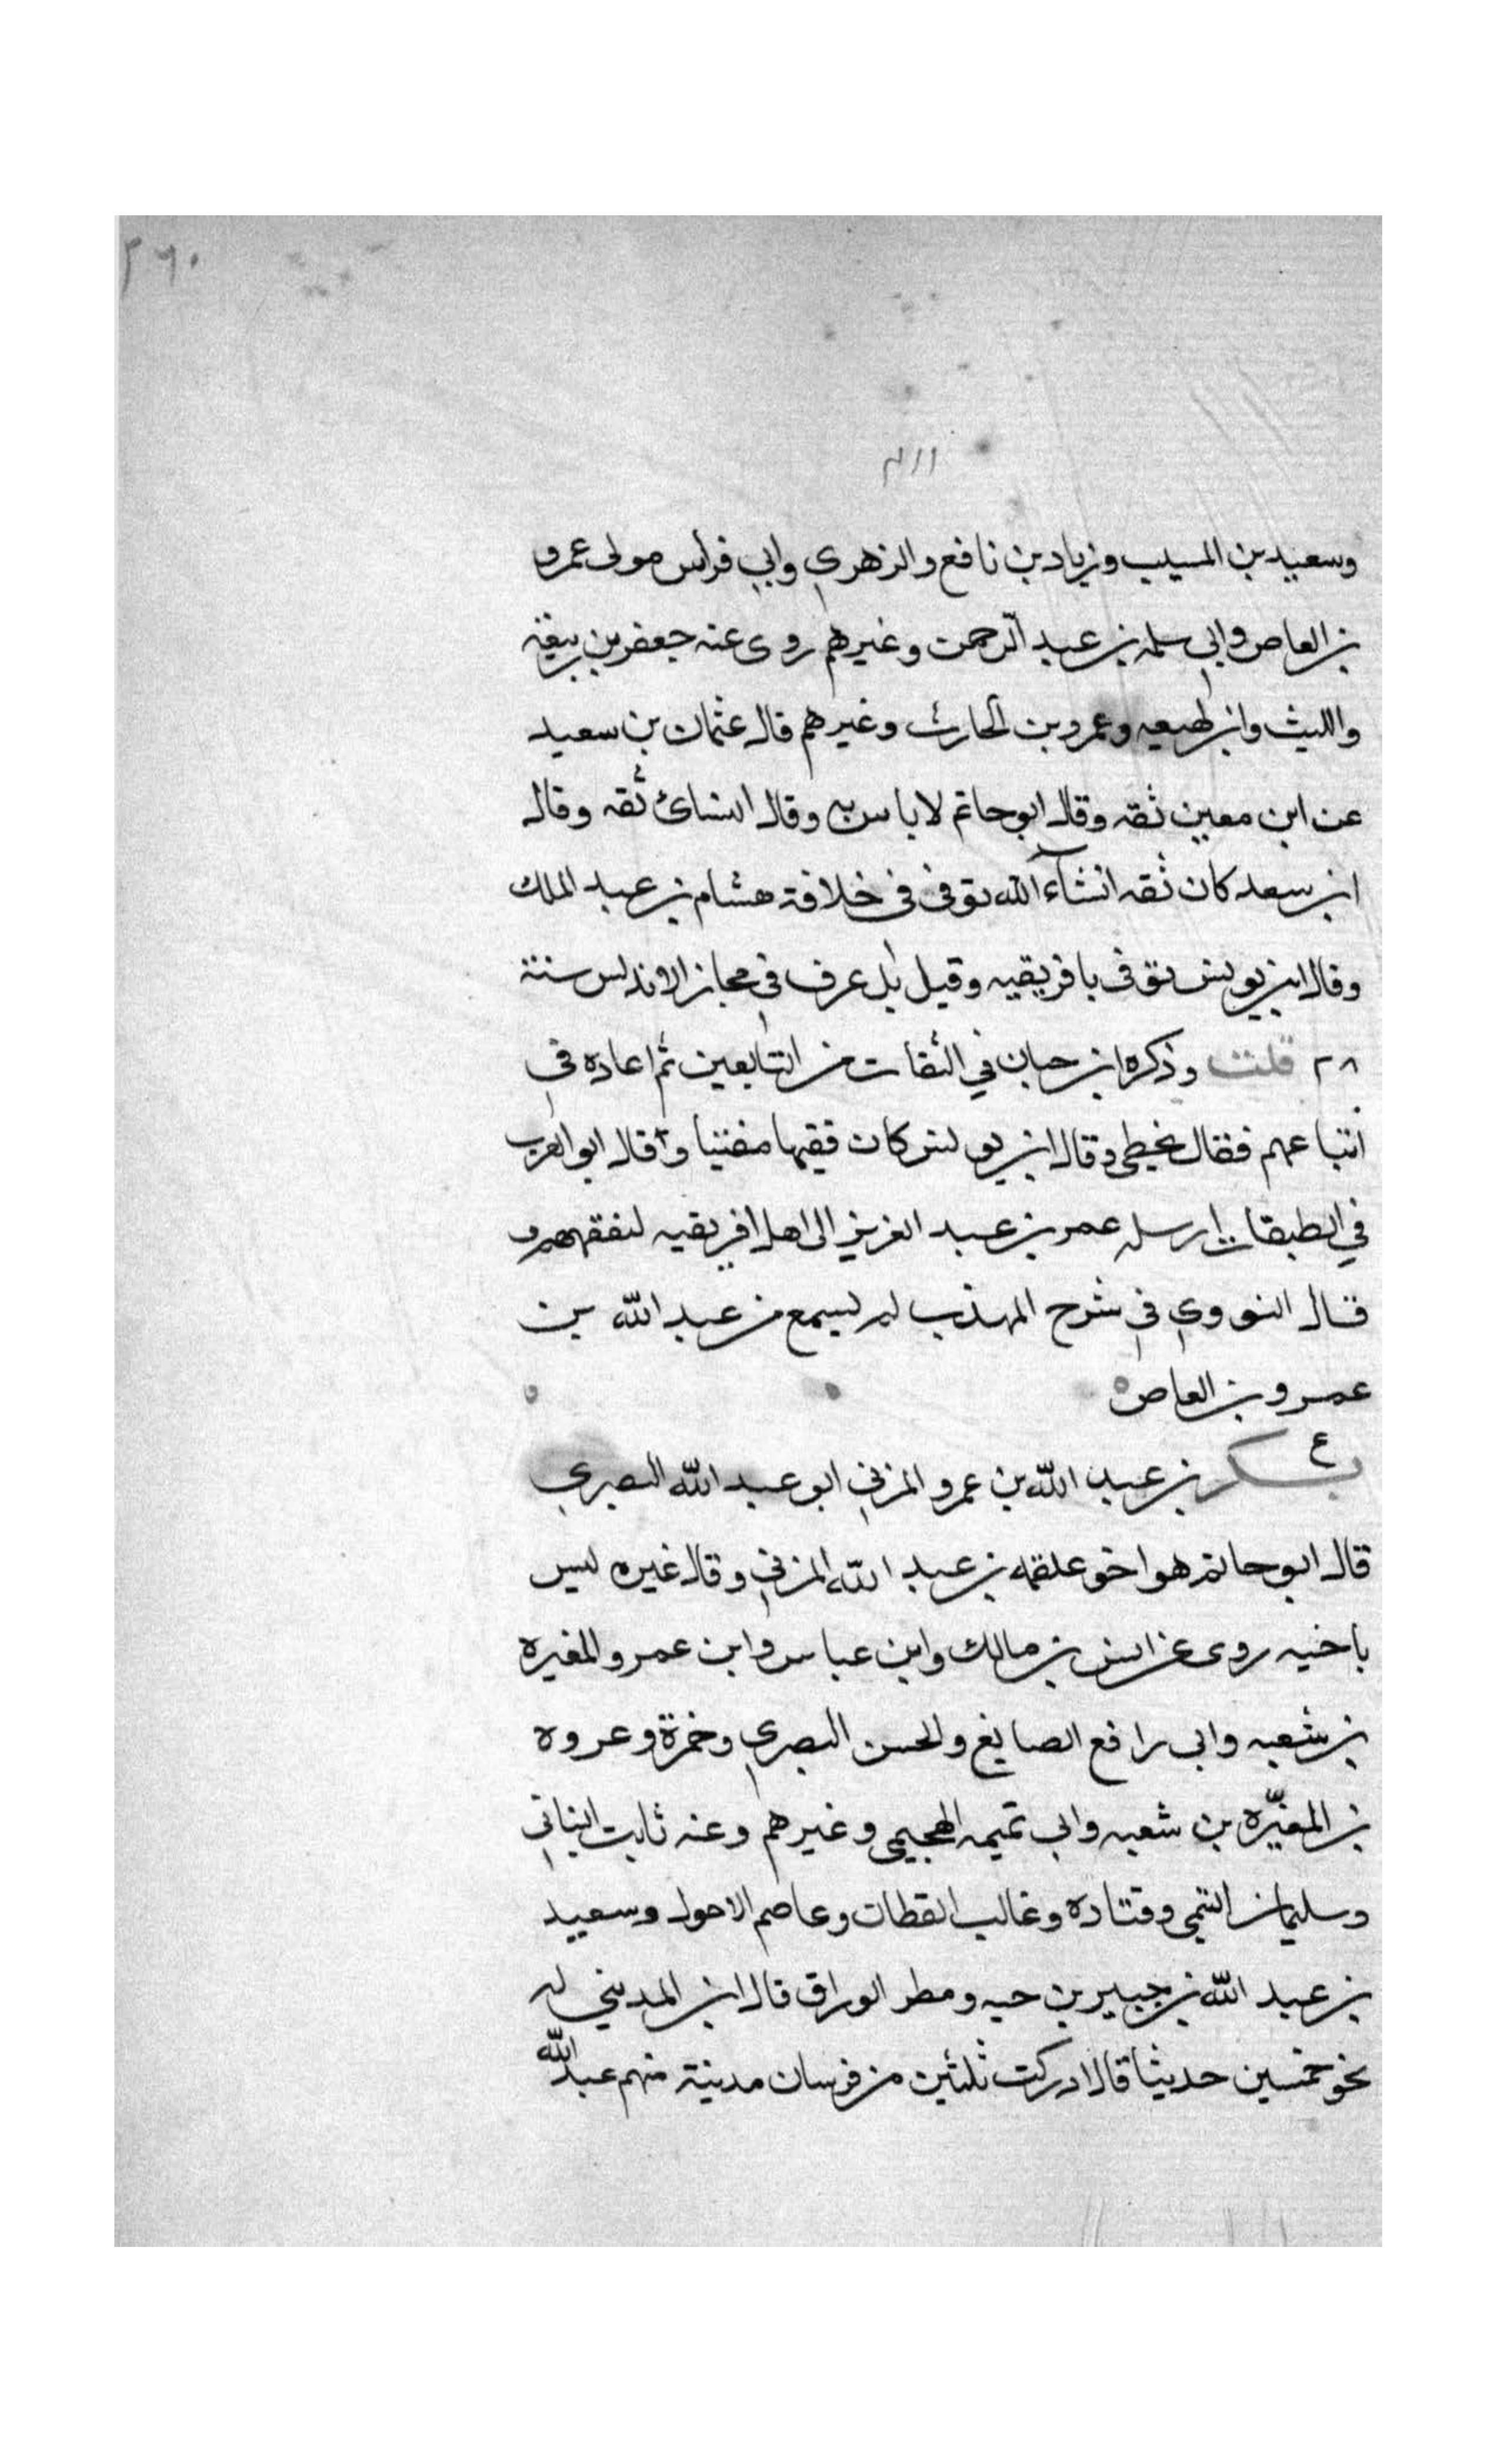 ٢٦٠
٢١١
وسعيد بن المسيب وزياد بن نافع والزهري وابي فراس مولى عمرو
بن العاص وابي سلمه بن عبد الرحمن وغيرهم روى عنه جعفر بن ربيعة
والليث وابن لهيعه وعمرو بن الحارث وغيرهم قال عثمان بن سعيد
عن ابن معين ثقه وقال ابو حاتم لا باس به وقال النسائ ثقه وقال
ابن سعد كان ثقه انشآء الله توفى فى خلافة هشام بن عبد الملك
وقال ابن يونس توفى بافريقيه وقيل بل غرق في مجاز الاندلس سنة
٢٨ قلت وذكره ابن حبان في الثقات من التابعين ثم اعاده في
اتباعهم فقال يخطى وقال ابن يونس كان فقيها مفتيا وقال ابو العرب
في الطبقات ارسله عمر بن عبد العزيز الى اهل افريقيه ليفقههم و
قال النووي في شرح المهذب لم يسمع من عبد الله بن
عمرو بن العاص
ع
بكر بن عبد الله بن عمرو المزني ابو عبد الله البصري
قال ابو حاتم هو اخو علقمه بن عبد الله المزني وقال غيره ليس
باخيه روى عن انس بن مالك وابن عباس وابن عمر والمغيره
بن شعبه وابى رافع الصايغ والحسن البصري وحمزة وعروه
بن المغيره بن شعبه وابي تميمه الهجيمي وغيرهم وعنه ثابت البناني
وسليمان التيمى وقتاده وغالب القطان وعاصم الاحول وسعيد
بن عبد الله بن جبير بن حيه ومطر الوراق قال ابن المديني له
نحو خمسين حديثا قال ادركت ثلثين من فرسان مدينة منهم عبد الله